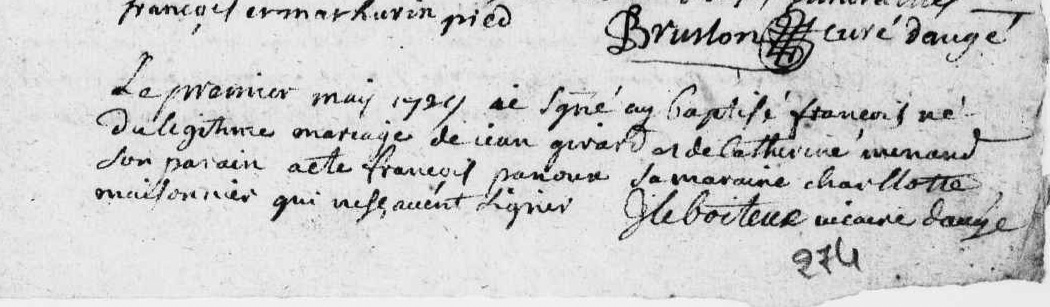 françois et mathurin pied
Bruslon curé d'augé
Le premier may je sgné ay baptisé françois né
du legitime mariage de jean girard et de Catherine menand
son parain a ete françois panoux sa maraine charllotte
maisonnier qui ne sçavent signer J leboiteux vicaire d'augé
274